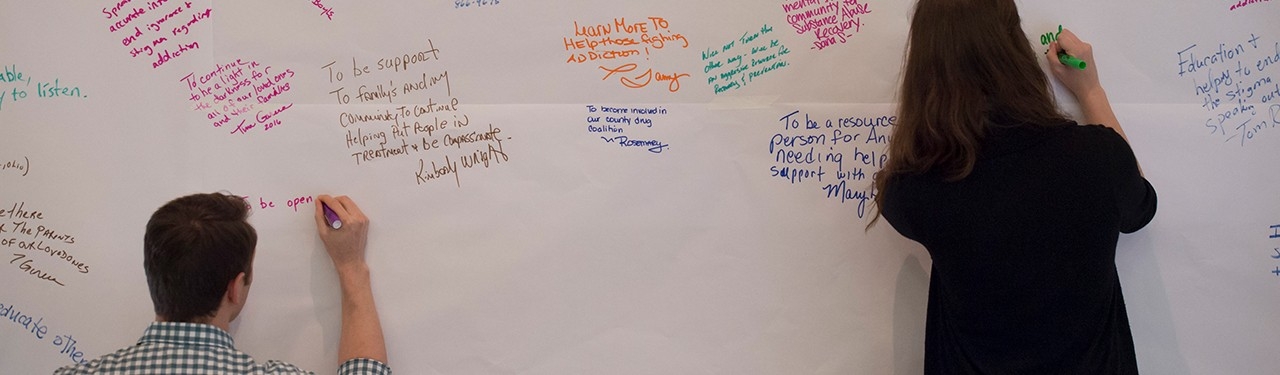 accurate in
end ignorance &
stigma regarding
addiction
866-9676
To continue
to be a light in
the darkness for
all of our loved ones
and their families
2016
able,
y to listen.
To be support
To family's and my
Community To continue
Helping Put People in
Treatment & Be Compassionate.
Kimberly Wright
To be open
Learn More To
Help those fighting
Addiction!
Amy
To become involved in
our county drug
coalition
~ Rosemary
Will not Turn the
other way. Will be
an aggressive
Recovery & prevention.
mental
community for
Substance Abuse
Recovery.
To be a resource
person for An
needing help
support with
Mary
and
addiction
Education &
help to end
the stigma
speaking out
- Tom
, Ohio)
ethere
The Parents
of our Loved ones
educate othe